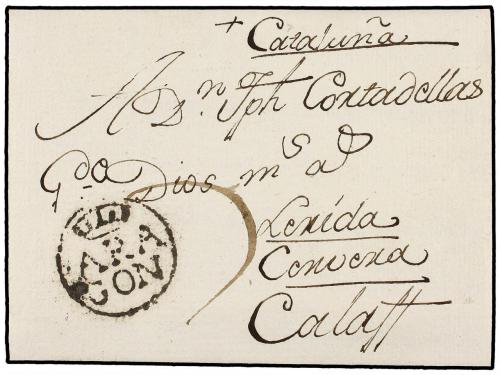 + Cataluña
A Dn. Jph Cortadellas
Gde. Dios ms. as.
Lerida
Cervera
Calaff
ARA
GON